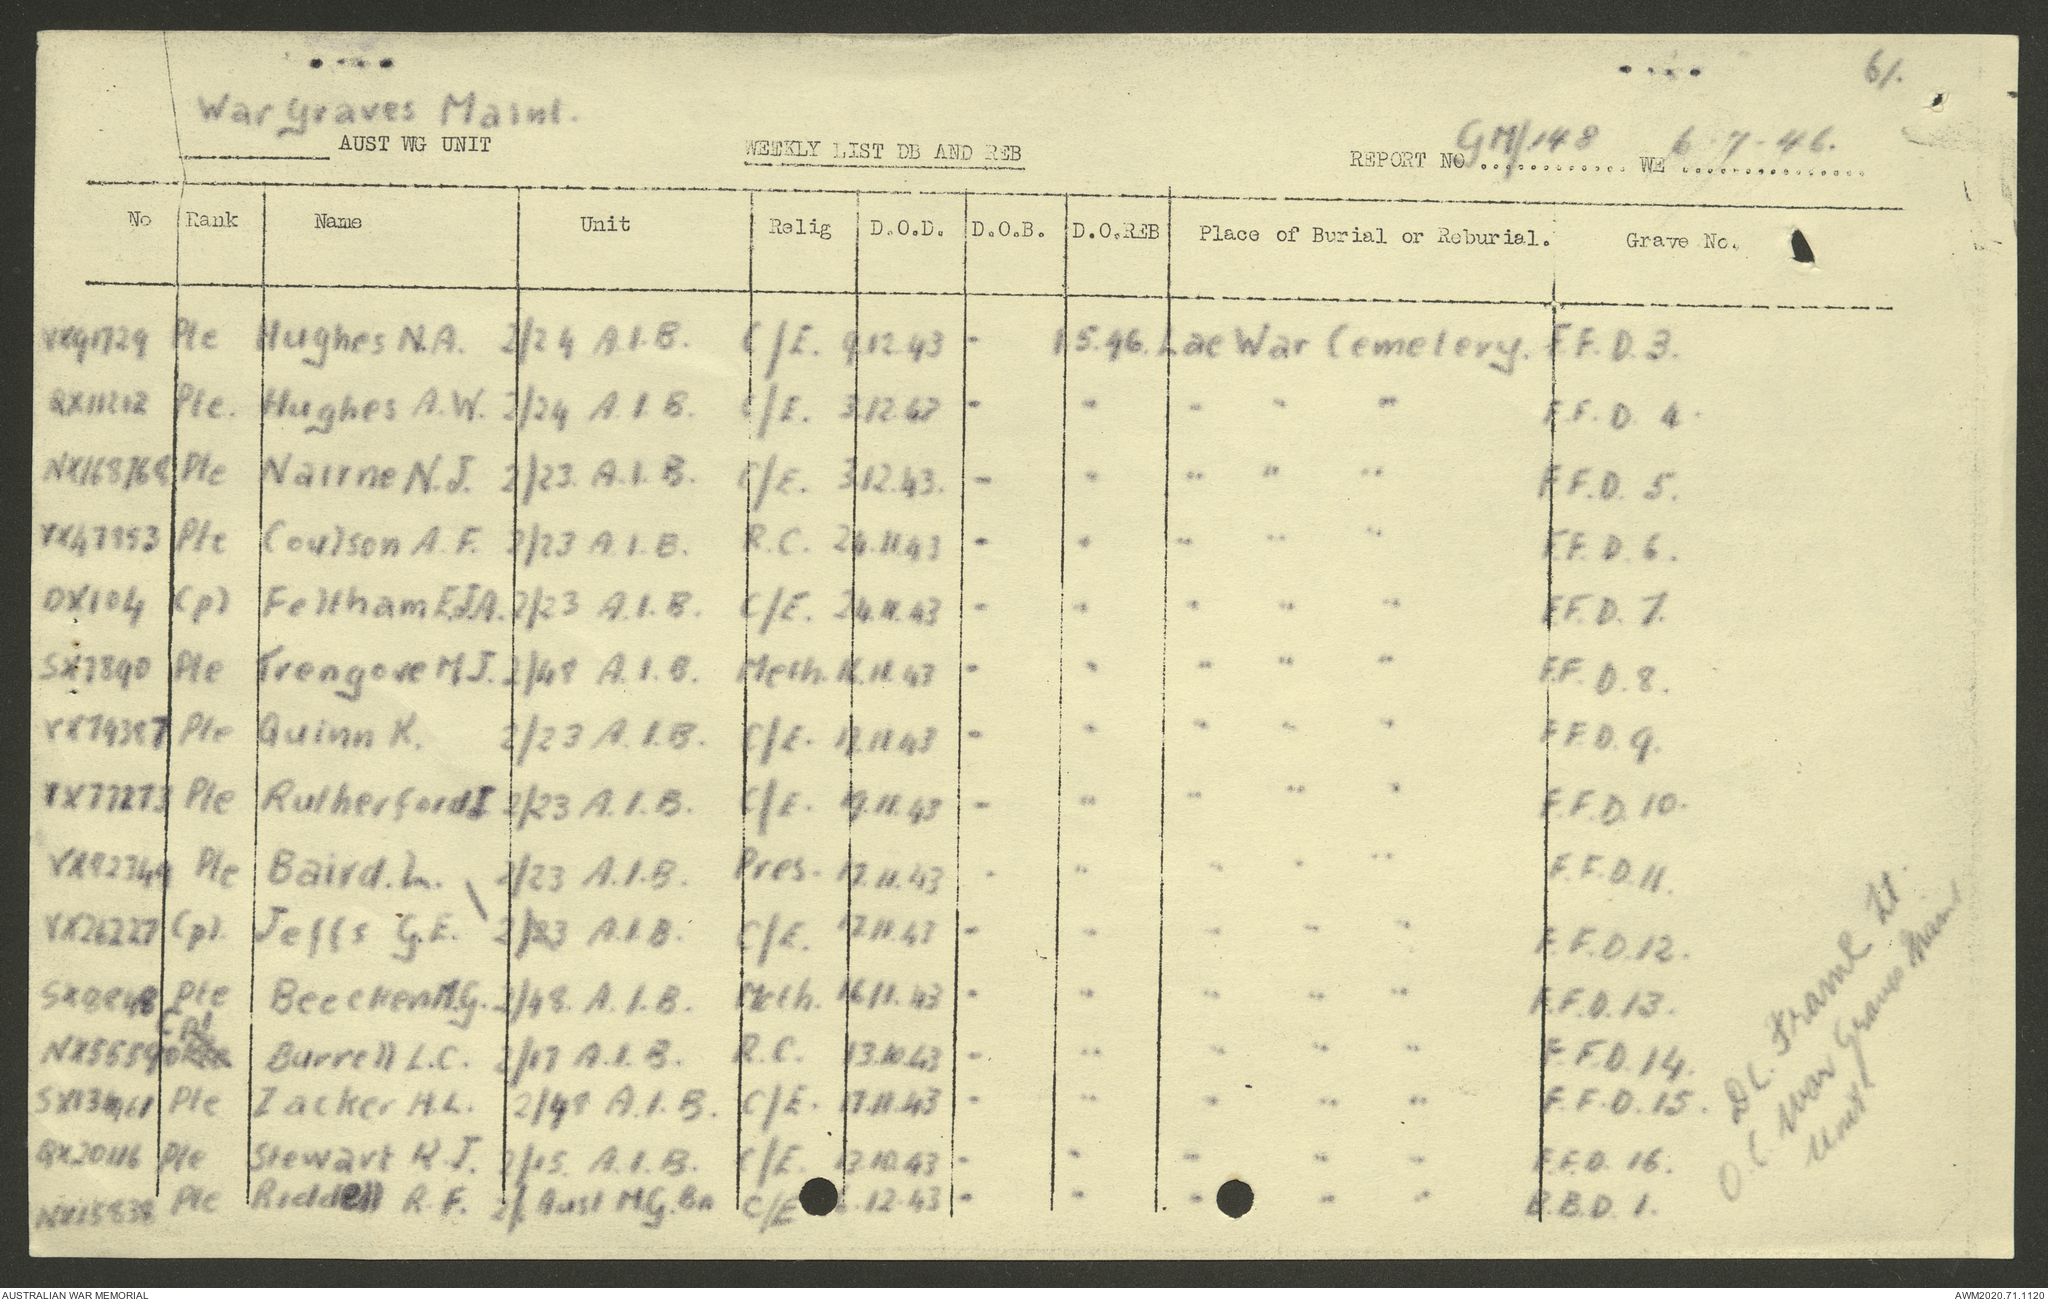 61.
War Graves Maint.
AUST WG UNIT WEEKLY LIST DB AND REB REPORT NO GM/148 WE 6-7-46.
No Rank Name Unit Relig D.O.D. D.O.B. D.O.REB Place of Burial or Reburial. Grave No.
VX91729 Pte Hughes N.A. 2/24 A.I.B. C/E. 9.12.43 - 1.5.46. Lae War Cemetery. F.F.D.3.
QX11212 Pte. Hughes A.W. 2/24 A.I.B. C/E. 3.12.47 - " " " " F.F.D. 4.
NX168768 Pte Nairne N.J. 2/23. A.I.B. C/E. 3.12.43. - " " " " F.F.D. 5.
VX47953 Pte Coulson A.F. 2/23 A.I.B. R.C. 24.11.43 - " " " " F.F.D.6.
DX104 Cpl Feltham E.J.A. 2/23 A.I.B. C/E. 24.11.43 - " " " " F.F.D.7.
SX7890 Pte Trengove M.J. 2/48 A.I.B. Meth. 16.11.43 - " " " " F.F.D.8.
VX74387 Pte Quinn K. 2/23 A.I.B. C/E. 17.11.43 - " " " " F.F.D.9.
VX77273 Pte Rutherford I 2/23 A.I.B. C/E. 19.11.43 - " " " " F.F.D.10.
VX92349 Pte Baird. L. 2/23 A.I.B. Pres. 17.11.43 - " " " " F.F.D.11.
VX26227 Cpl. Jeffs G.E. 2/23 A.I.B. C/E. 17.11.43 - " " " " F.F.D.12.
Pte Beecken M.G. 2/48. A.I.B. Meth. 16.11.43 - " " " " F.F.D.13.
NX55590 Cpl Burrell L.C. 2/17 A.I.B. R.C. 13.10.43 - " " " " F.F.D.14.
Pte Zacker H.L. 2/48 A.I.B. C/E. 17.11.43 - " " " " F.F.D.15.
QX20116 Pte Stewart R.J. 2/15. A.I.B. C/E. 13.10.43 - " " " " F.F.D. 16.
NX15838 Pte Riddell R.F. 2/1 Aust M.G. Bn C/E .12.43 - " " " " B.B.D. 1.
D.L. Frame Lt.
O.C. War Graves Maint
Unit
AUSTRALIAN WAR MEMORIAL AWM2020.71.1120